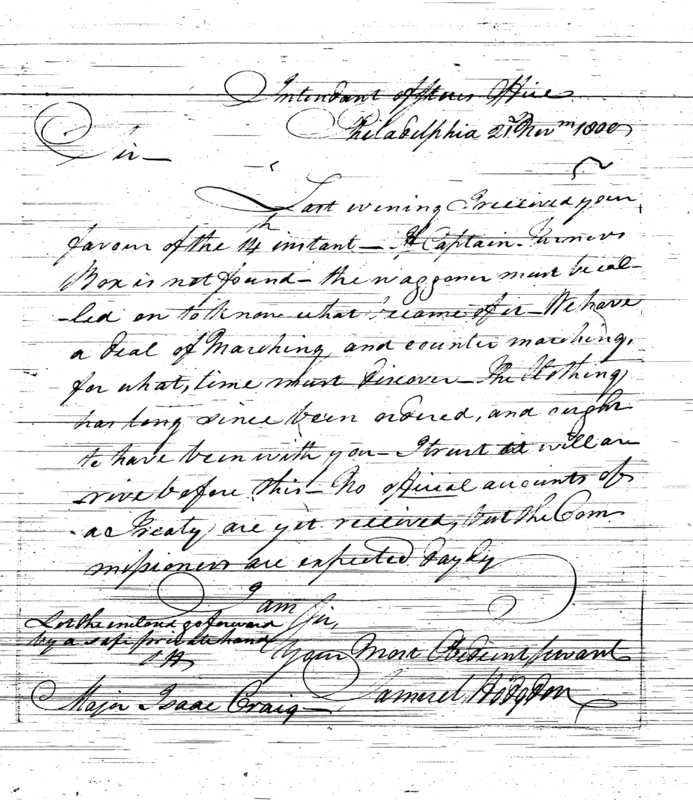 Intendant of Stores Office
Philadelphia 21st Novm 1800
Sir—
Last evening I received your
favour of the 14th instant— If Captain Turners
Box is not found— the waggoner must be cal-
-led on to know what became of it— We have
a deal of Marching, and counter marching,
for what, time must discover— The Clothing
has long since been ordered, and ought
to have been with you— I trust it will ar
rive before this— No official accounts of
a Treaty are yet received, but the Com
missioners are expected dayly
I am Sir,
Your Most Obedient servant
Samuel Hodgdon
Let the enclosed go forward
by a safe private hand
SH
Major Isaac Craig—